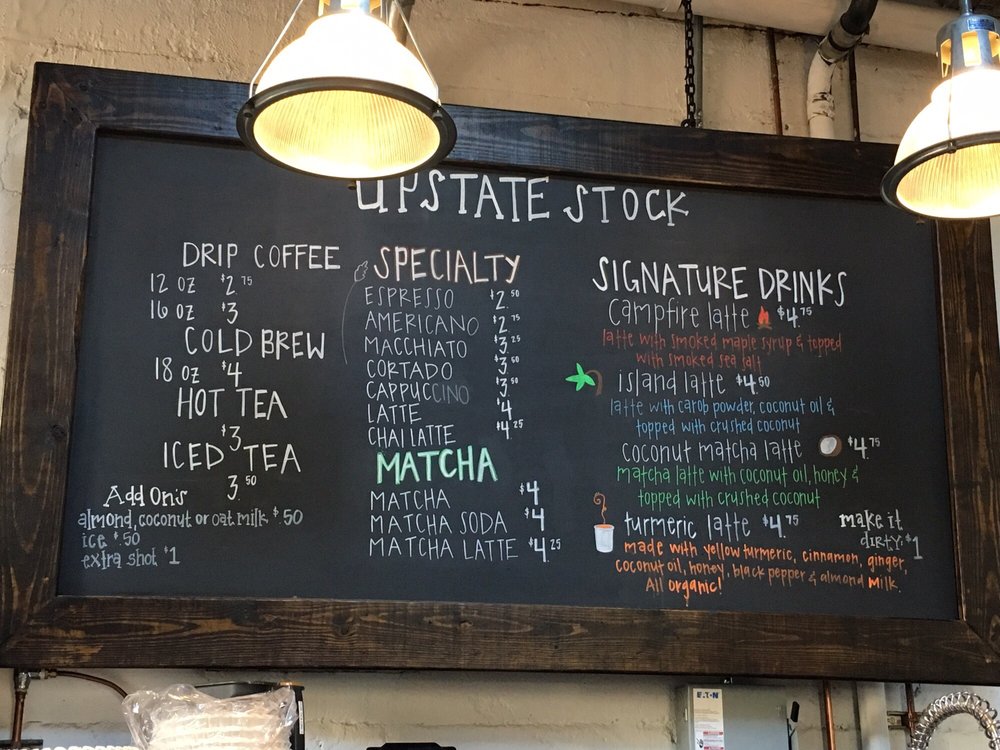 UPSTATE STOCK
DRIP COFFEE
12 OZ $2.75
16 OZ $3
COLD BREW
18 OZ $4
HOT TEA
$3
ICED TEA
3.50
Add On's
almond, coconut or oat milk $.50
ice $.50
extra shot $1
SPECIALTY
ESPRESSO $2.50
AMERICANO $2.75
MACCHIATO $3.25
CORTADO $3.50
CAPPUCCINO $3.50
LATTE $4
CHAI LATTE $4.25
MATCHA
MATCHA $4
MATCHA SODA $4
MATCHA LATTE $4.25
SIGNATURE DRINKS
campfire latte $4.75
latte with smoked maple syrup & topped
with smoked sea salt
island latte $4.50
latte with carob powder, coconut oil &
topped with crushed coconut
coconut matcha latte $4.75
matcha latte with coconut oil, honey &
topped with crushed coconut
turmeric latte $4.75
make it
dirty: $1
made with yellow turmeric, cinnamon, ginger,
coconut oil, honey, black pepper & almond milk.
All organic!
EATON